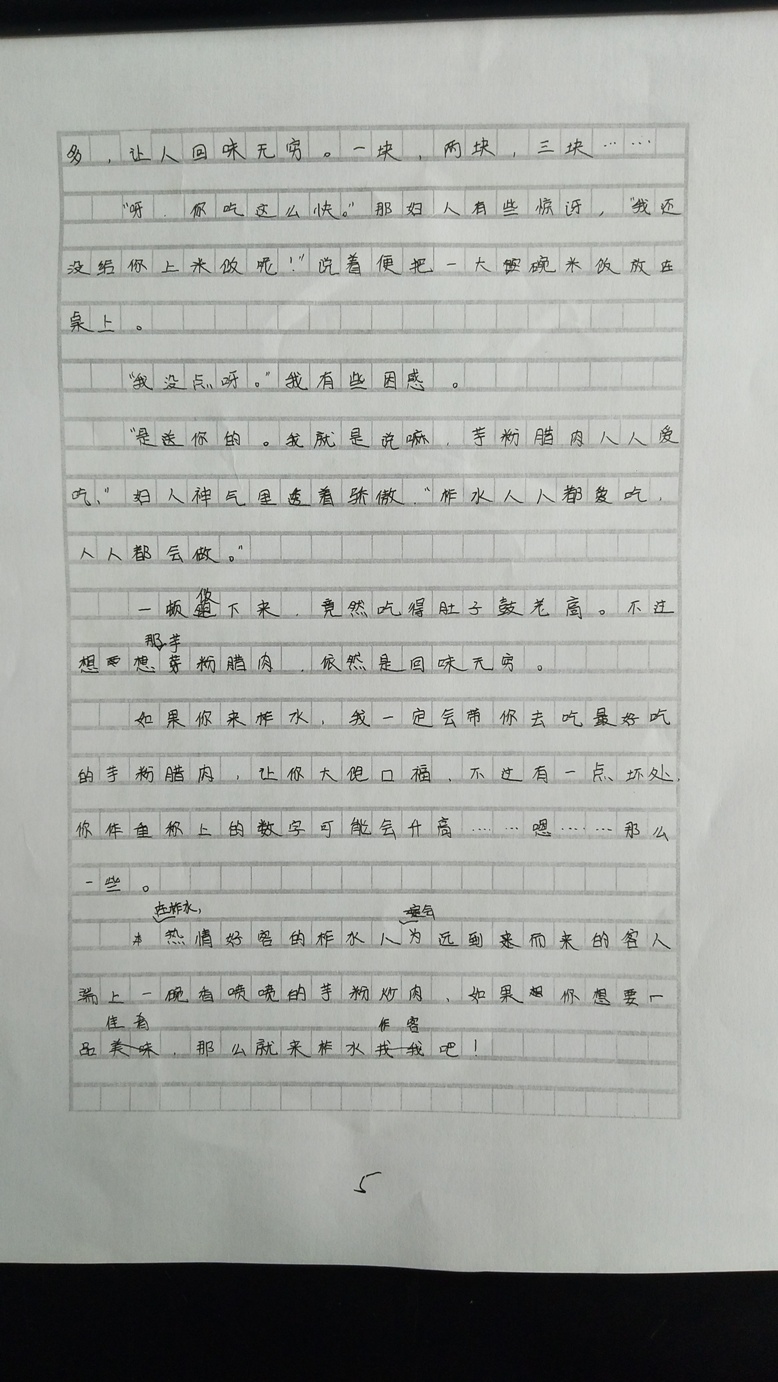 多，让人回味无穷。一块，两块，三块……
“呀，你吃这么快。”那妇人有些惊讶，“我还
没给你上米饭呢！”说着便把一大碗米饭放在
桌上。
“我没点呀。”我有些困惑。
“是送你的。我就是说嘛，芋粉腊肉人人爱
吃，”妇人神气里透着骄傲，“柞水人人都爱吃，
人人都会做。”
饭
一顿下来，竟然吃得肚子鼓老高。不过
那芋
想想粉腊肉，依然是回味无穷。
如果你来柞水，我一定会带你去吃最好吃
的芋粉腊肉，让你大饱口福，不过有一点坏处，
你体重称上的数字可能会升高……嗯……那么
一些。
在柞水，
一定会
热情好客的柞水人为远到来而来的客人
端上一碗香喷喷的芋粉炒肉，如果你想要一
佳肴 作客
品美味，那么就来柞水找我吧！
5